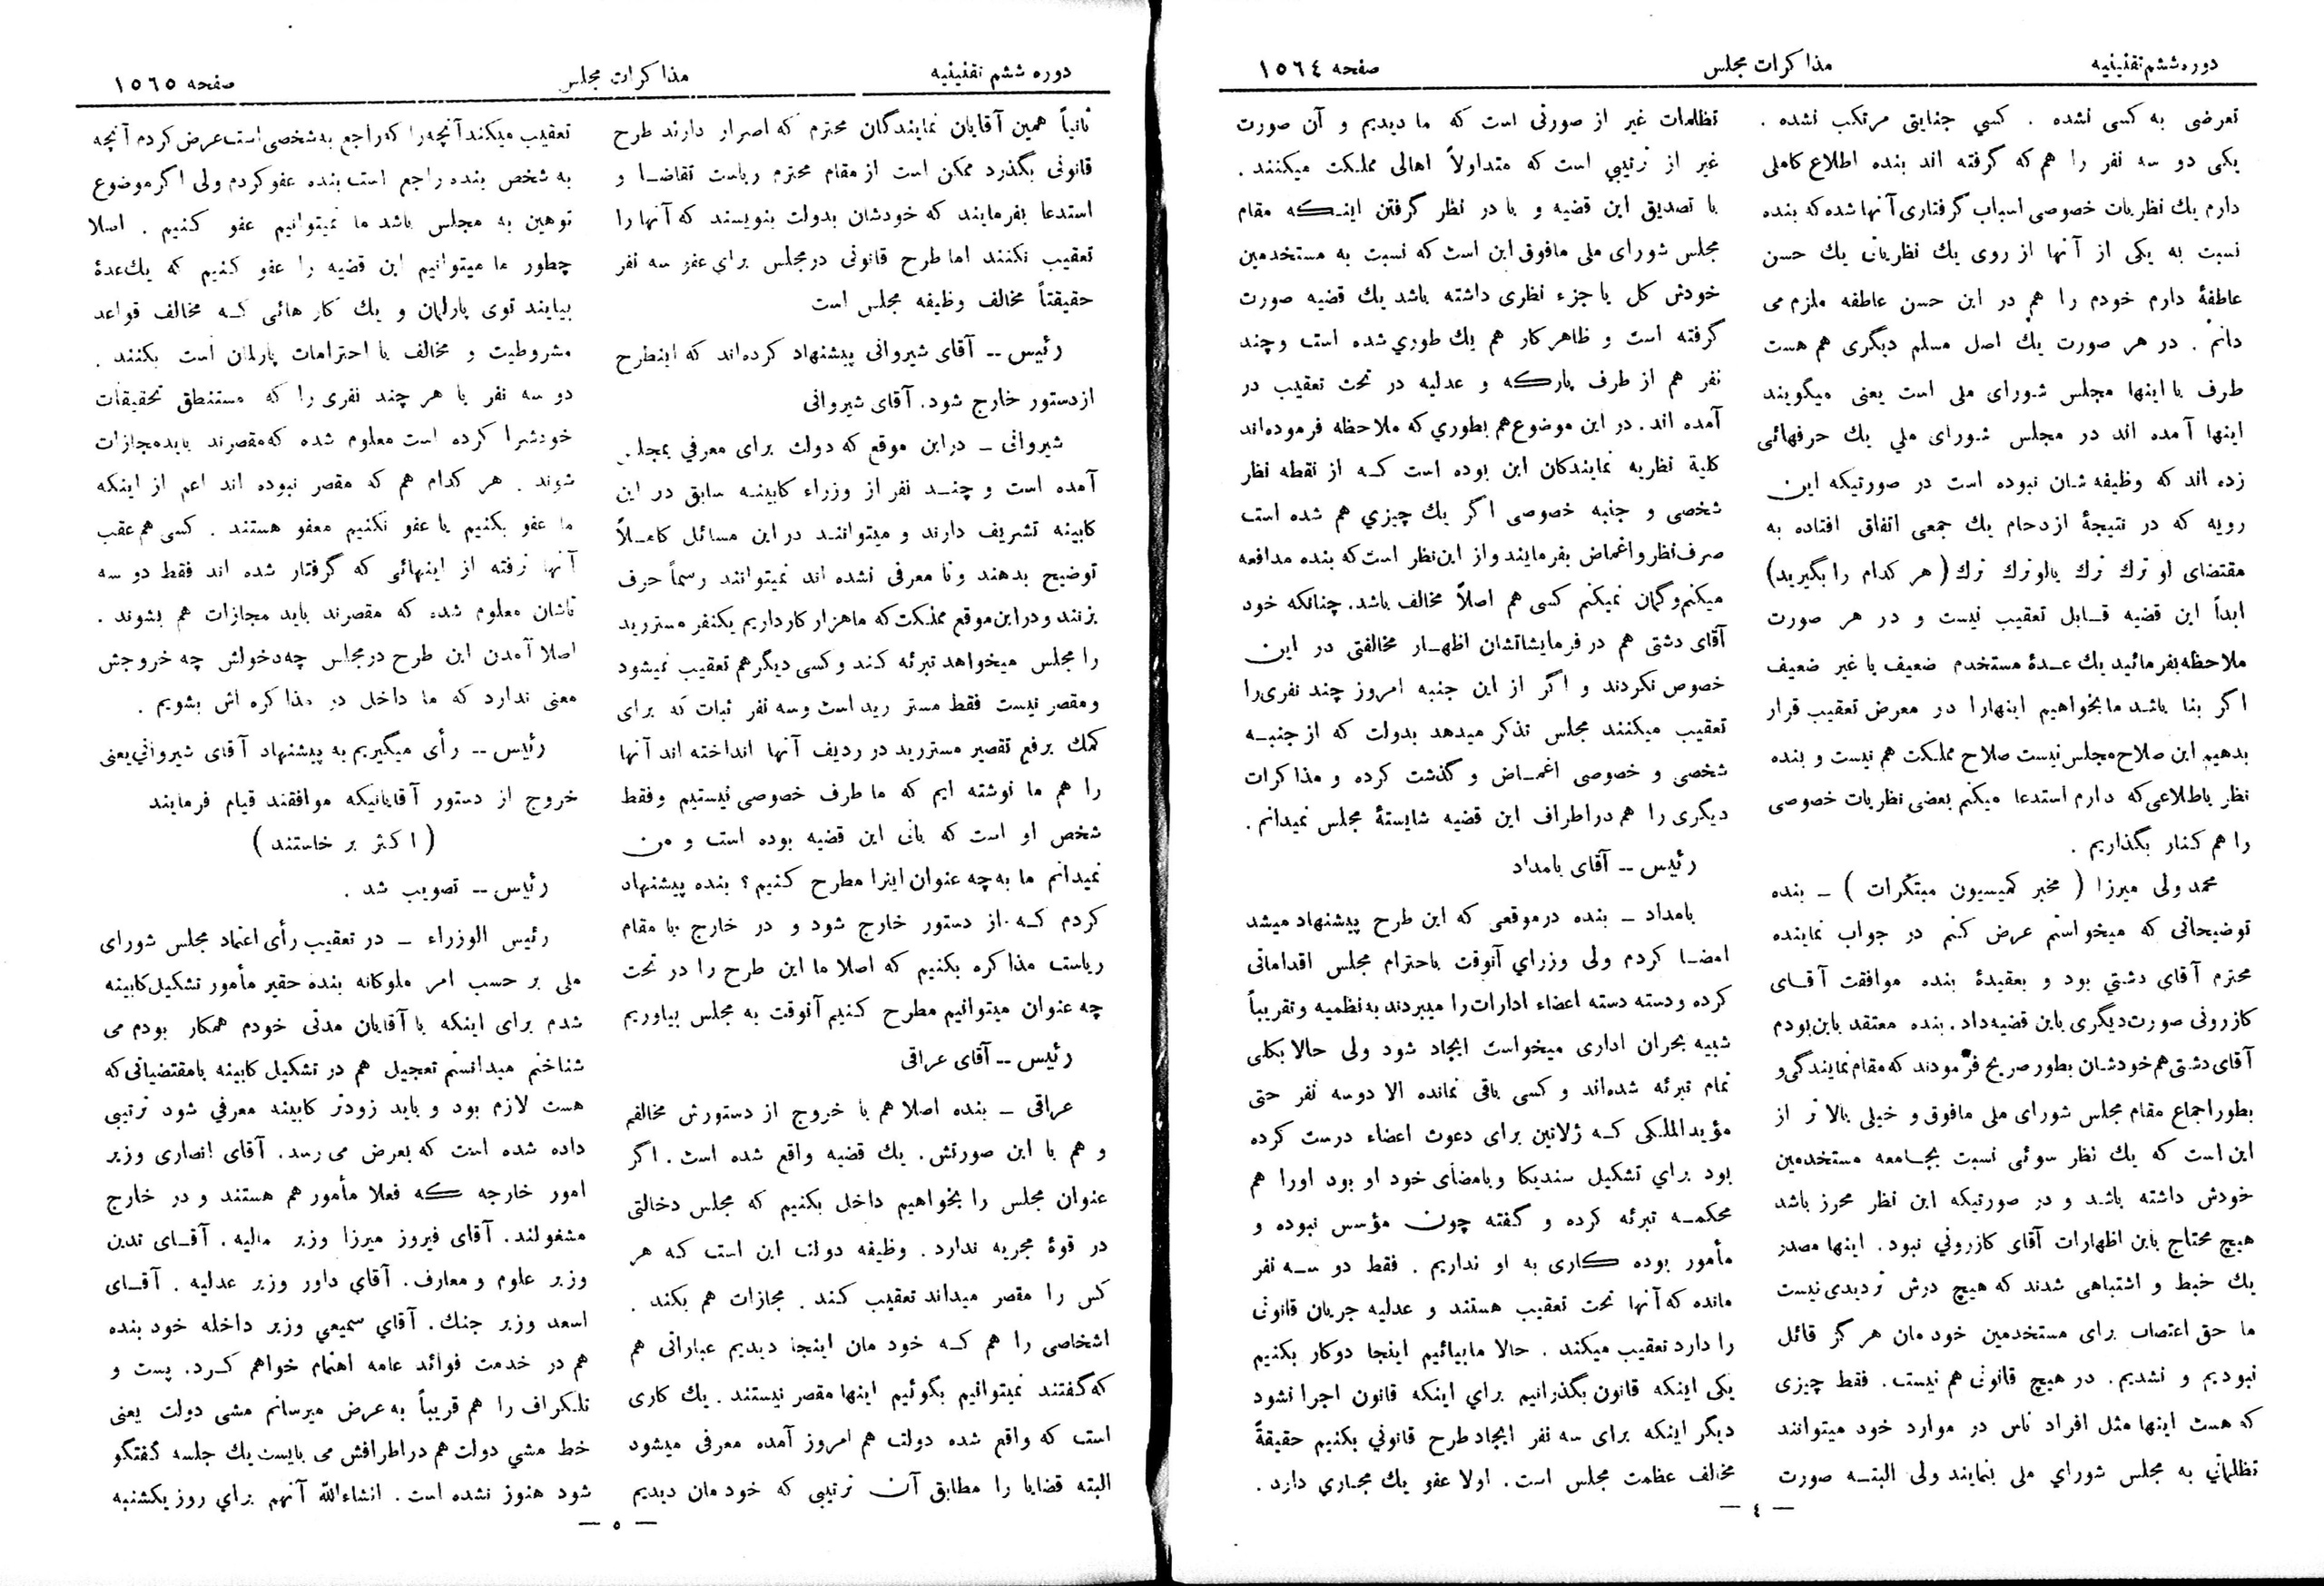 دوره ششم تقنینیه
مذاکرات مجلس
صفحه ١٥٦٤
تعرضی به کسی نشده . کسي جنایتی مرتکب نشده .
یکی دو سه نفر را هم که گرفته اند بنده اطلاع کاملی
دارم یك نظریات خصوصی اسباب گرفتاری آنها شده که بنده
نسبت به یکی از آنها از روی یك نظریات یك حسن
عاطفۀ دارم خودم را هم در این حسن عاطفه ملزم می
دانم . در هر صورت یك اصل مسلم دیگری هم هست
طرف با اینها مجلس شورای ملی است یعنی میگویند
اینها آمده اند در مجلس شورای ملي یك حرفهائی
زده اند که وظیفه شان نبوده است در صورتیکه این
رویه که در نتیجۀ ازدحام یك جمعی اتفاق افتاده به
مقتضای او ترك ترك یالو ترك ترك ( هر کدام را بگیرید)
ابداً این قضیه قابل تعقیب نیست و در هر صورت
ملاحظه بفرمائید یك عدۀ مستخدم ضعیف یا غیر ضعیف
اگر بنا باشد ما بخواهیم اینهارا در معرض تعقیب قرار
بدهیم این صلاح مجلس نیست صلاح مملکت هم نیست و بنده
نظر باطلاعی که دارم استدعا میکنم بعضی نظریات خصوصی
را هم کنار بگذاریم .
محمد ولی میرزا ( مخبر کمیسیون مبتکرات ) ـ بنده
توضیحاتی که میخواستم عرض کنم در جواب نماینده
محترم آقای دشتي بود و بعقیدۀ بنده موافقت آقای
کازرونی صورت دیگری باین قضیه داد . بنده معتقد باین بودم
آقای دشتی هم خودشان بطور صریح فرمودند که مقام نمایندگی و
بطور اجماع مقام مجلس شورای ملی مافوق و خیلی بالا تر از
این است که یك نظر سوئی نسبت بجامعه مستخدمین
خودش داشته باشد و در صورتیکه این نظر محرز باشد
هیچ محتاج باین اظهارات آقای کازروني نبود . اینها مصدر
یك خبط و اشتباهی شدند که هیچ درش تردیدی نیست
ما حق اعتصاب برای مستخدمین خودمان هر گز قائل
نبودیم و نشدیم . در هیچ قانونی هم نیست . فقط چیزی
که هست اینها مثل افراد ناس در موارد خود میتوانند
تظلماتي به مجلس شوراي ملی بنمایند ولی البته صورت
تظلمات غیر از صورتی است که ما دیدیم و آن صورت
غیر از ترتیبي است که متداولاً اهالی مملکت میکنند .
با تصدیق این قضیه و با در نظر گرفتن اینکه مقام
مجلس شورای ملی مافوق این است که نسبت به مستخدمین
خودش کل یا جزء نظری داشته باشد یك قضیه صورت
گرفته است و ظاهر کار هم یك طوري شده است و چند
نفر هم از طرف پارکه و عدلیه در تحت تعقیب در
آمده اند . در این موضوع هم بطوري که ملاحظه فرموده اند
کلیة نظریه نمایندکان این بوده است که از نقطه نظر
شخصی و جنبه خصوصی اگر یك چیزي هم شده است
صرف نظر و اغماض بفرمایند و از این نظر است که بنده مدافعه
میکنم و گمان نمیکنم کسی هم اصلاً مخالف باشد . چنانکه خود
آقای دشتی هم در فرمایشاتشان اظهار مخالفتی در این
خصوص نکردند و اگر از این جنبه امروز چند نفری را
تعقیب میکنند مجلس تذکر میدهد بدولت که از جنبه
شخصی و خصوصی اغماض و گذشت کرده و مذاکرات
دیگری را هم در اطراف این قضیه شایستۀ مجلس نمیدانم .
رئیس ــ آقای بامداد
بامداد ـ بنده در موقعی که این طرح پیشنهاد میشد
امضا کردم ولی وزراي آنوقت باحترام مجلس اقداماتی
کرده و دسته دسته اعضاء ادارات را میبردند به نظمیه و تقریباً
شبیه بحران اداری میخواست ایجاد شود ولی حالا بکلی
تمام تبرئه شده‌اند و کسی باقی نمانده الا دو سه نفر حتی
مؤید الملکی که ژلانین برای دعوت اعضاء درست کرده
بود براي تشکیل سندیکا و بامضای خود او بود اورا هم
محکمه تبرئه کرده و گفته چون مؤسس نبوده و
مأمور بوده کاری به او نداریم . فقط دو سه نفر
مانده که آنها تحت تعقیب هستند و عدلیه جریان قانونی
را دارد تعقیب میکند . حالا ما بیائیم اینجا دوکار بکنیم
یکی اینکه قانون بگذرانیم براي اینکه قانون اجرا نشود
دیگر اینکه برای سه نفر ایجاد طرح قانوني بکنیم حقیقةً
مخالف عظمت مجلس است . اولا عفو یك مجاري دارد .
ـ ٤ ـ
دوره ششم تقنینیه
مذاکرات مجلس
صفحه ١٥٦٥
ثانیاً همین آقایان نمایندگان محترم که اصرار دارند طرح
قانونی بگذرد ممکن است از مقام محترم ریاست تقاضا و
استدعا بفرمایند که خودشان بدولت بنویسند که آنها را
تعقیب نکنند اما طرح قانونی در مجلس براي عفو سه نفر
حقیقتاً مخالف وظیفه مجلس است
رئیس ــ آقای شیروانی پیشنهاد کرده‌اند که اینطرح
از دستور خارج شود . آقای شیروانی
شیروانی ـ در این موقع که دولت برای معرفي بمجلس
آمده است و چند نفر از وزراء کابینه سابق در این
کابینه تشریف دارند و میتوانند در این مسائل کاملاً
توضیح بدهند و تا معرفی نشده اند نمیتوانند رسماً حرف
بزنند و در این موقع مملکت که ما هزار کار داریم یکنفر مسترید
را مجلس میخواهد تبرئه کند و کسی دیگر هم تعقیب نمیشود
و مقصر نیست فقط مستر رید است و سه نفر ثبات که برای
کمك برفع تقصیر مسترید در ردیف آنها انداخته اند آنها
را هم ما نوشته ایم که ما طرف خصوصی نیستیم و فقط
شخص او است که بانی این قضیه بوده است و من
نمیدانم ما به چه عنوان اینرا مطرح کنیم ؟ بنده پیشنهاد
کردم که از دستور خارج شود و در خارج با مقام
ریاست مذاکره بکنیم که اصلا ما این طرح را در تحت
چه عنوان میتوانیم مطرح کنیم آنوقت به مجلس بیاوریم
رئیس ــ آقای عراقی
عراقی ـ بنده اصلا هم با خروج از دستورش مخالفم
و هم با این صورتش . یك قضیه واقع شده است . اگر
عنوان مجلس را بخواهیم داخل بکنیم که مجلس دخالتی
در قوۀ مجریه ندارد . وظیفه دولت این است که هر
کس را مقصر میداند تعقیب کند . مجازات هم بکند .
اشخاصی را هم که خود مان اینجا دیدیم عباراتی هم
که گفتند نمیتوانیم بگوئیم اینها مقصر نیستند . یك کاری
است که واقع شده دولت هم امروز آمده معرفی میشود
البته قضایا را مطابق آن ترتیبی که خودمان دیدیم
تعقیب میکند آنچه را که راجع به شخصی است عرض کردم آنچه
به شخص بنده راجع است بنده عفو کردم ولی اگر موضوع
توهین به مجلس باشد ما نمیتوانیم عفو کنیم . اصلا
چطور ما میتوانیم این قضیه را عفو کنیم که یك عدۀ
بیایند توی پارلمان و یك کار هائی که مخالف قواعد
مشروطیت و مخالف با احترامات پارلمان است بکنند .
دو سه نفر یا هر چند نفری را که مستنطق تحقیقات
خودشرا کرده است معلوم شده که مقصرند باید مجازات
شوند . هر کدام هم که مقصر نبوده اند اعم از اینکه
ما عفو بکنیم یا عفو نکنیم معفو هستند . کسی هم عقب
آنها نرفته از اینهائی که گرفتار شده اند فقط دو سه
تاشان معلوم شده که مقصرند باید مجازات هم بشوند .
اصلا آمدن این طرح در مجلس چه دخولش چه خروجش
معنی ندارد که ما داخل در مذاکره اش بشویم .
رئیس ــ رأی میگیریم به پیشنهاد آقای شیروانی یعنی
خروج از دستور آقایانیکه موافقند قیام فرمایند
( اکثر بر خاستند )
رئیس ــ تصویب شد .
رئیس الوزراء ـ در تعقیب رأی اعتماد مجلس شورای
ملی بر حسب امر ملوکانه بنده حقیر مأمور تشکیل کابینه
شدم برای اینکه با آقایان مدتی خودم همکار بودم می
شناختم میدانستم تعجیل هم در تشکیل کابینه بامقتضیاتی که
هست لازم بود و باید زودتر کابینه معرفي شود ترتیبی
داده شده است که بعرض می رسد . آقای انصاری وزیر
امور خارجه که فعلا مأمور هم هستند و در خارج
مشغولند . آقای فیروز میرزا وزیر مالیه . آقای تدین
وزیر علوم و معارف . آقاي داور وزیر عدلیه . آقای
اسعد وزیر جنك . آقاي سمیعي وزیر داخله خود بنده
هم در خدمت فوائد عامه اهتمام خواهم کرد . پست و
تلگراف را هم قریباً به عرض میرسانم مشی دولت یعنی
خط مشي دولت هم در اطرافش می بایست یك جلسه گفتگو
شود هنوز نشده است . انشاءالله آنهم براي روز یکشنبه
ـ ٥ ـ